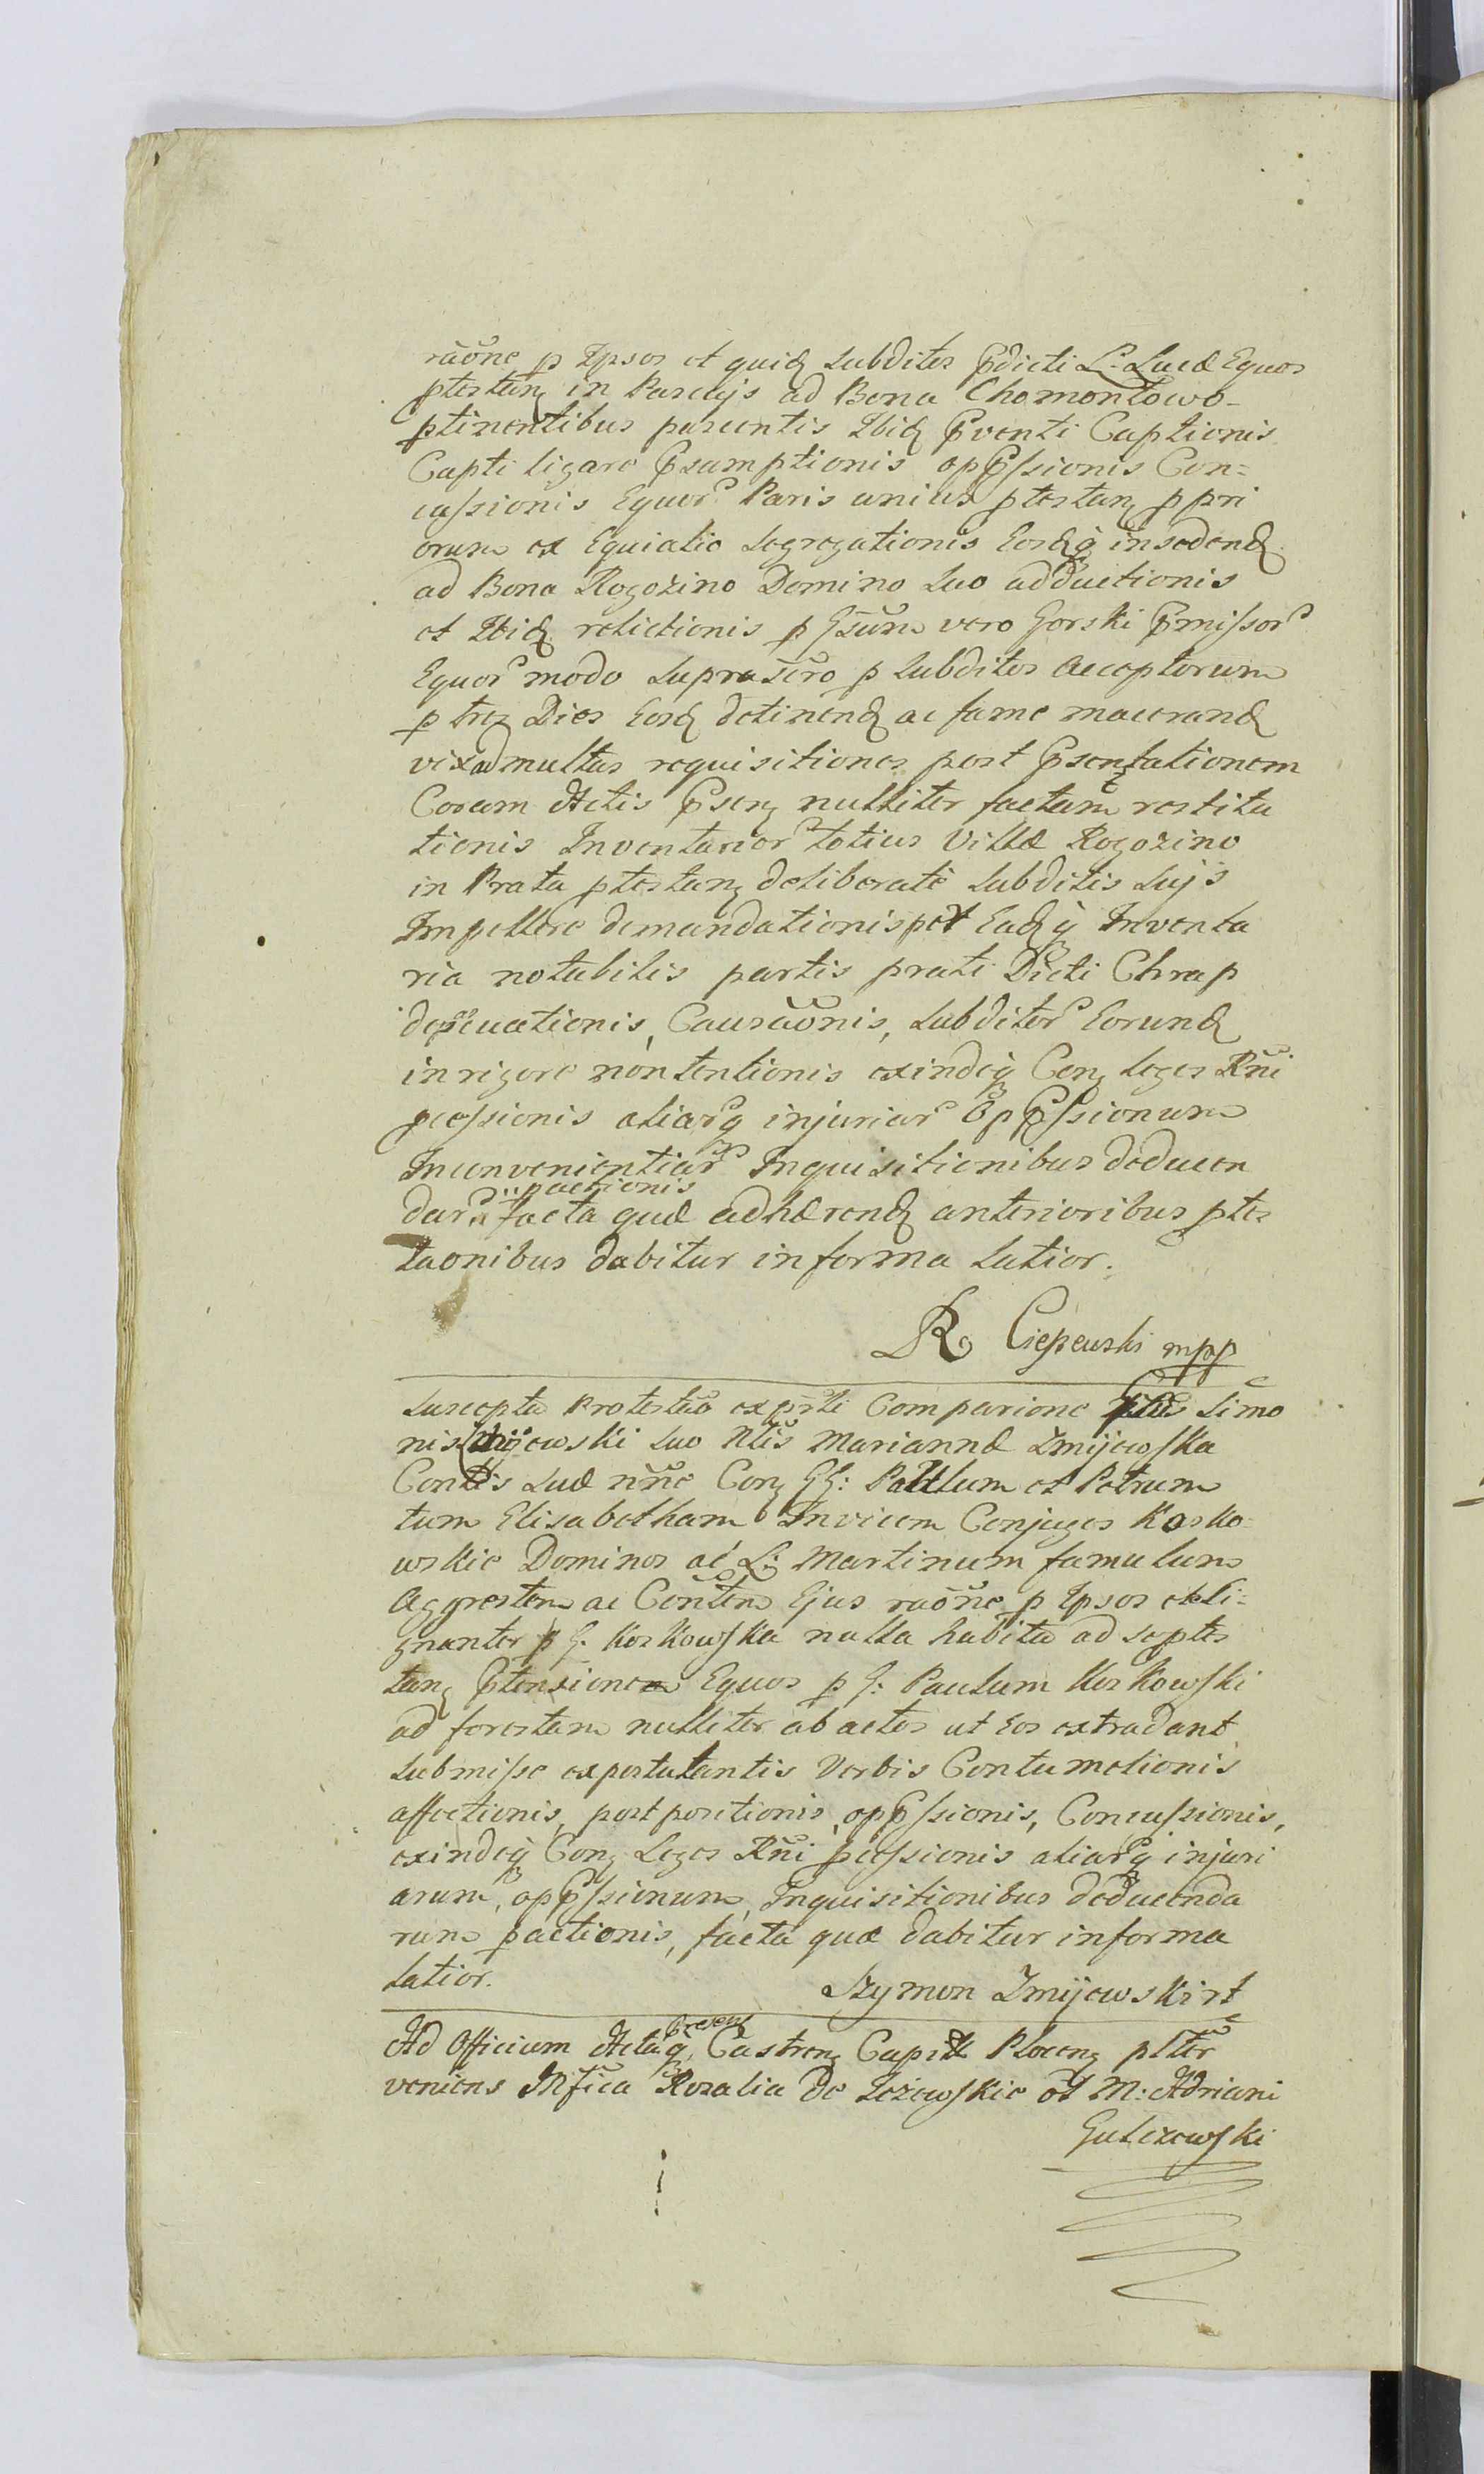 raône p Ipsos et quidꝫ Subditos pdicti L: Lucæ Equos
ptestanꝫ in Pascuys ad Bona Chomontowo-
ptinentibus pascentis Ibidꝫ pventi Captionis
Capti ligare psumptionis oppſsionis Con=
cuſsionis Equorꝰ Paris unius ptestanꝫ ppri
orum ex Equiatio Segregationis Eosdꝫqꝫ insedendꝫ
ad Bona Rogozino Domino Suo adductionis
et Ibidꝫ relictionis p Gsum vero Gorski pmiſsorꝰ
Equorꝰ modo Suprascro p Subditos Acceptorum
p trez Dies Eosdꝫ detinendꝫ ac fame macerandꝫ
vix ad multas requisitiones post psenꝫtationem
Coram Actis psenꝫ nulliter factam restitu
tionis Inventariorꝰ totius Villæ Rogozino
in Prata ptestanꝫ deliberatè Subditis Suÿs
Impellere demandationis per Eadꝫqꝫ Inventa
ria notabilis partis prati Dicti Chrap
Causaõnis, Subditorꝰ Eorundꝫ
in rigore non tentionis exindeqꝫ Conꝫ leges Rñi
pceſsionis aliarꝰqꝫ injuriarꝰ Oppſsionum
Inconvenientiarꝰ Inquisitionibus deducen
darꝰ pactionis facta quæ adhærendꝫ anterioribus ptes
taonibus dabitur in forma latior.
R Ciepewski mpp
Suscepta Protestaõ ex prti Comparione Simo
nis Żmijewski Suo Nlis Mariannæ Zmijewſka
Contis Suæ nñe Conꝫ GG: Paulum et Petrum
tum Elisabetham Invicem Conjuges Kosko-
wskie Dominos ac L: Martinum famulum
Aggrestem ac Contem Ejus raône p Ipsos et Si=
gnanter p G. Koskowſka nulla habita ad Se ptes
tanꝫ ptensione Equos p G: Paulum Koskowſki
ad forestam nulliter abactos ut Eos extradant
Submiſse expostulantis Verbis Contumelionis
affectionis, postpositionis, oppſsionis, Concuſsionis,
exindeqꝫ Conꝫ Leges Rñi pceſsionis aliarꝰqꝫ injuri
arum, oppſsionum, Inquisitionibus deducenda
rum pactionis, facta quæ dabitur in forma
latior.
Szymon Zmijewski rt
Ad Officium Actaqꝫ presens Castrenꝫ Capitł Plocenꝫ plter
veniens Mfica Rozalia De Jeżewſkie M: Adriani
Gulczewſki